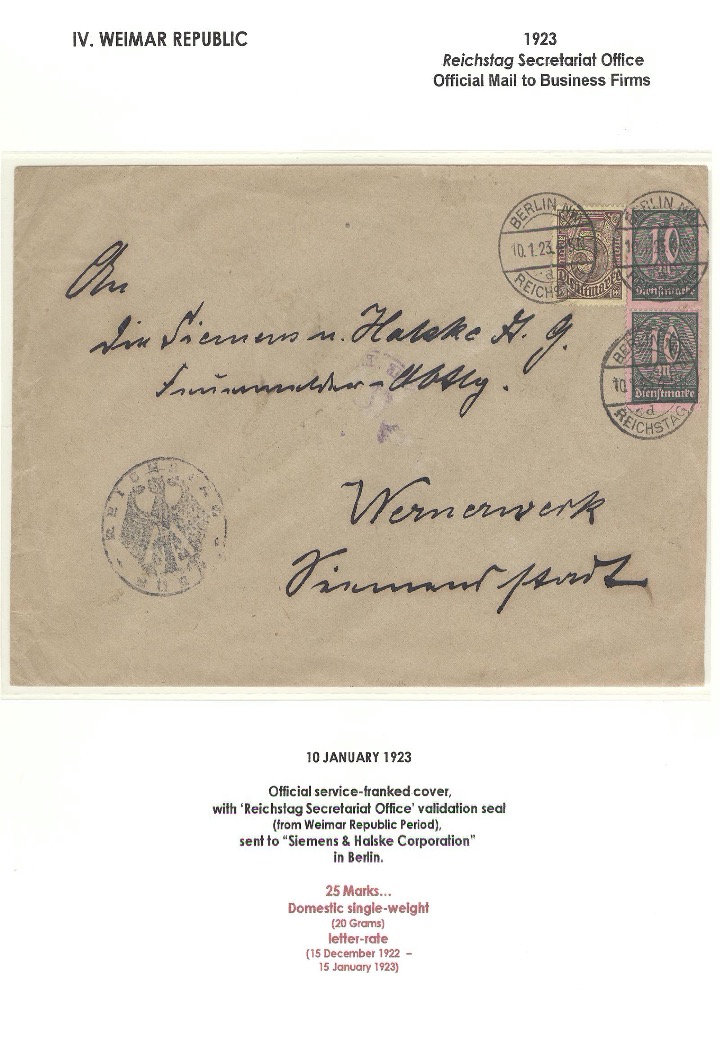 IV. WEIMAR REPUBLIC
1923
Reichstag Secretariat Office
Official Mail to Business Firms
BERLIN NW
10.1.23.
d
REICHSTAG
5
Dienstmarke
10
M
Dienstmarke
10
M
Dienstmarke
REICHSTAG
An
die Siemens u. Halske A. G.
Fernmelder-Abtlg.
REICHSTAG
Wernerwerk
Siemensstadt
10 JANUARY 1923
Official service-franked cover,
with ‘Reichstag Secretariat Office’ validation seal
(from Weimar Republic Period),
sent to “Siemens & Halske Corporation”
in Berlin.
25 Marks...
Domestic single-weight
(20 Grams)
letter-rate
(15 December 1922 –
15 January 1923)